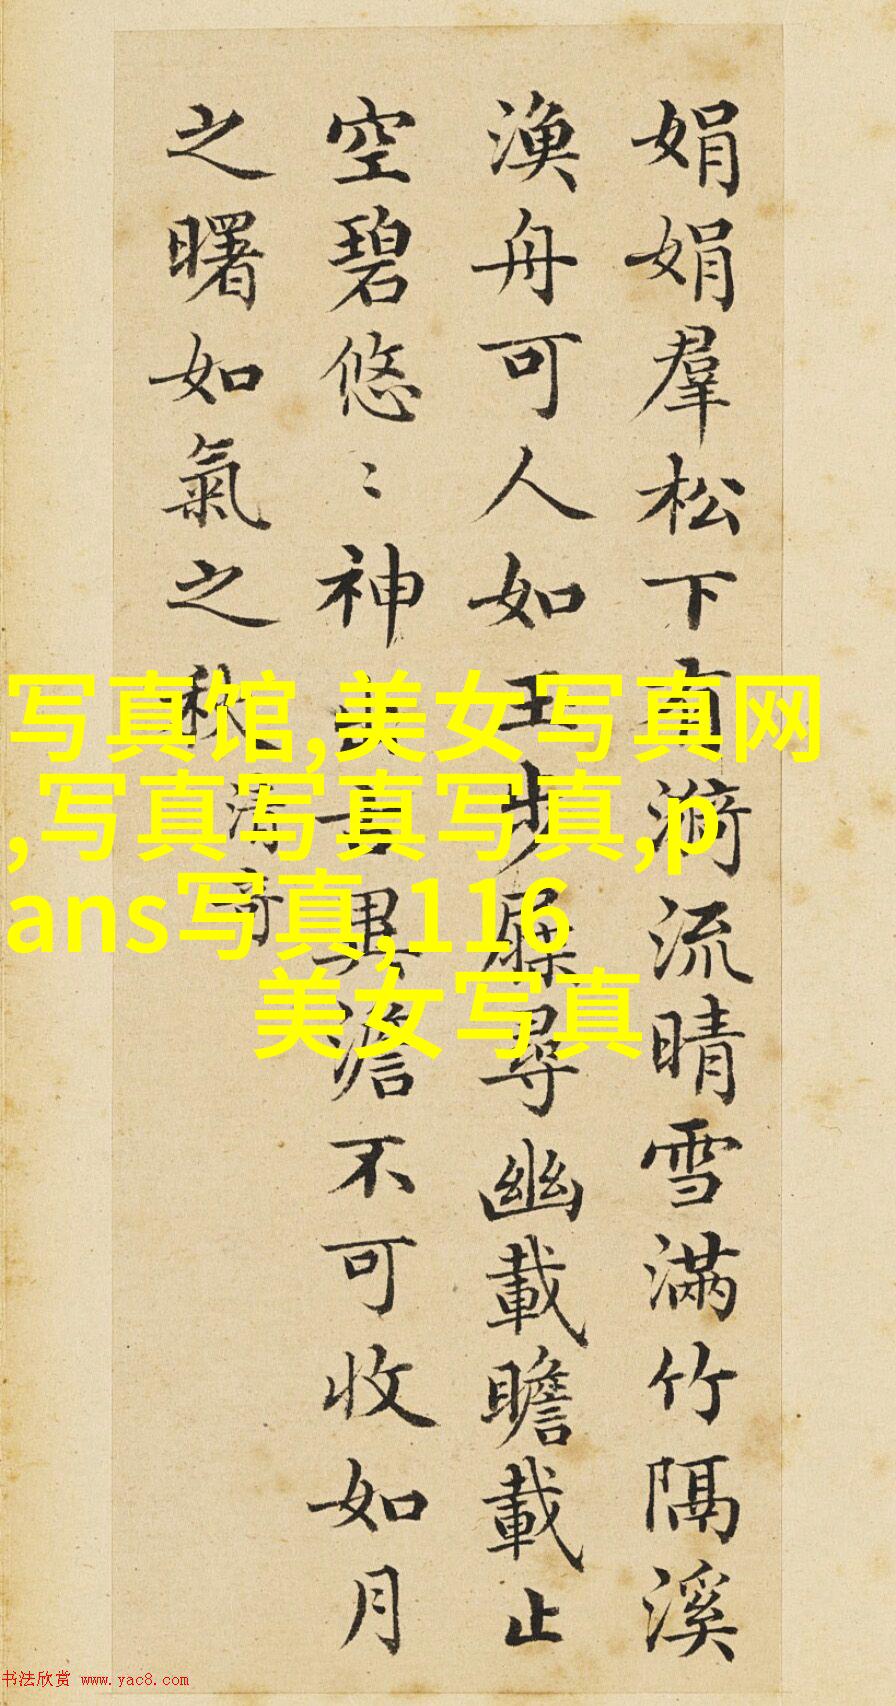 娟娟羣松下有漪流晴雪滿竹隔溪
漁舟可人如玉步屧尋幽載瞻載止
空碧悠〻神出古異澹不可收如月
之曙如氣之秋
清奇
写真馆,美女写真网
,写真写真写真,p
ans写真,116
美女写真
书法欣赏 www.yac8.com